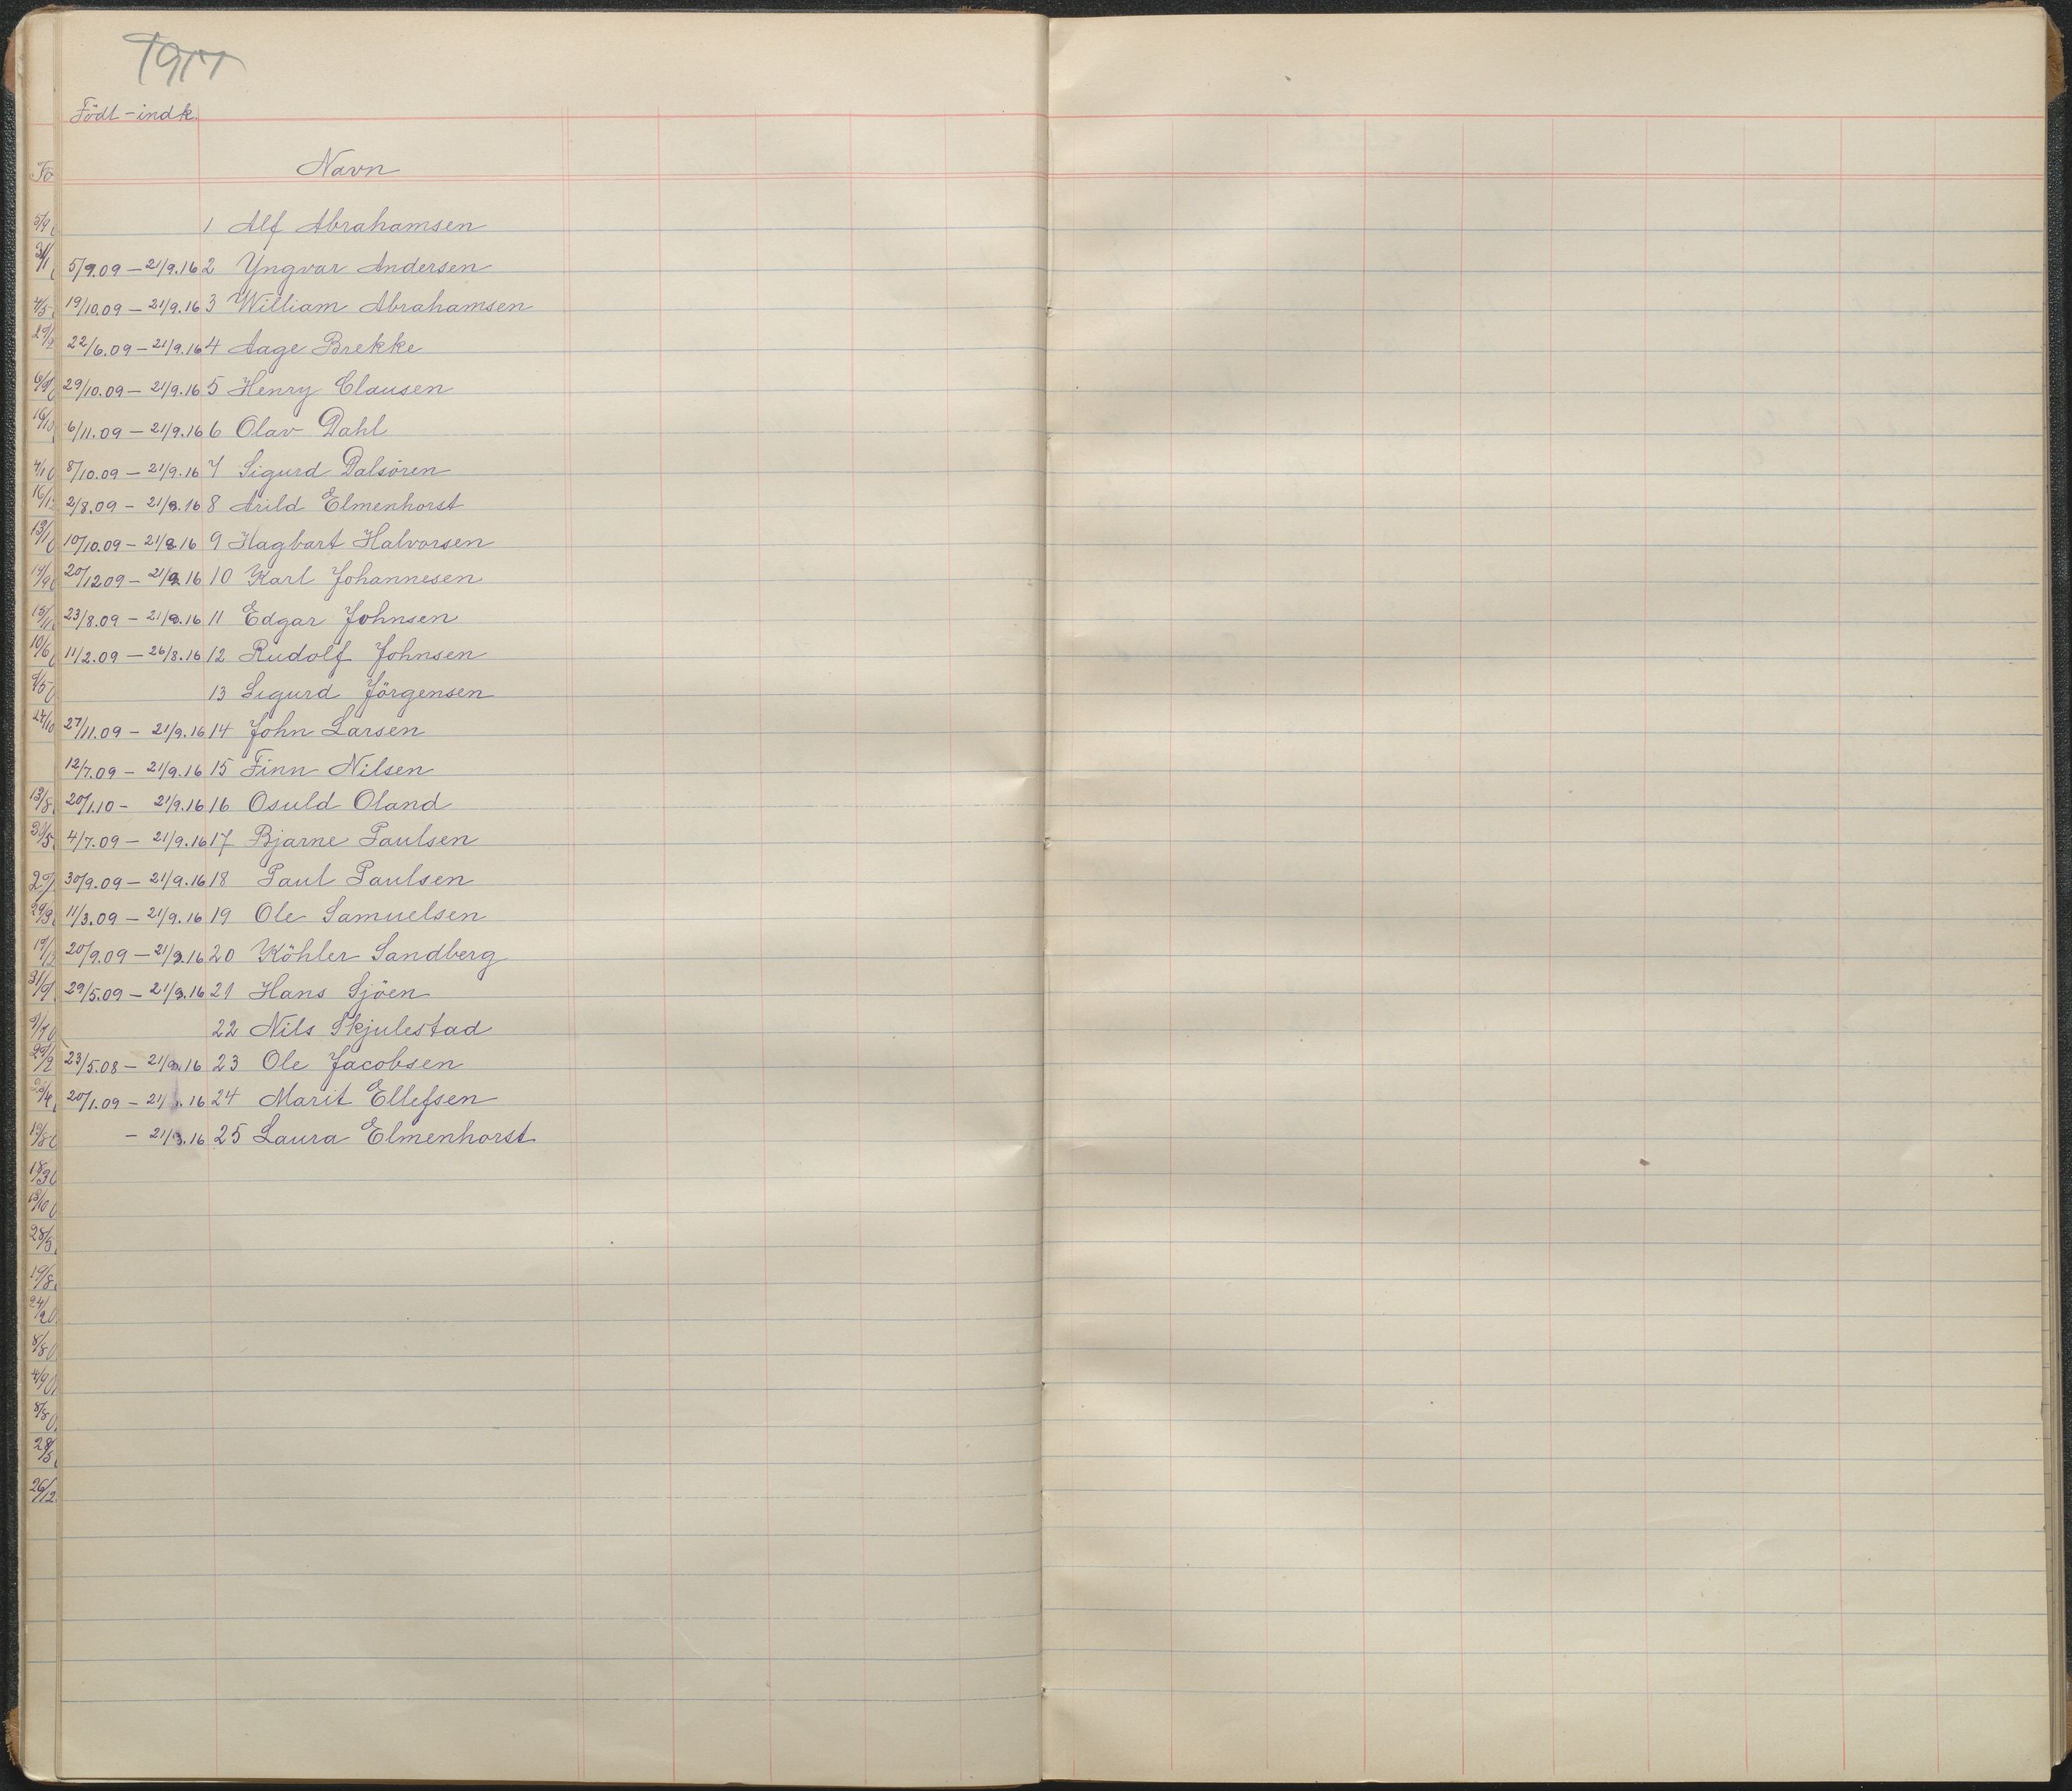 1917
Födt - indk.
Navn
1 Alf Abrahamsen
5/9.09 - 21/9.16 2 Yngvar Andersen
19/10.09 - 21/9.16 3 William Abrahamsen
22/6.09 - 21/9.16 4 Aage Brekke
29/10.09 - 21/9.16 5 Henry Clausen
6/11.09 - 21/9.16 6 Olav Dahl
8/10.09 - 21/9.16 7 Sigurd Dalsören
2/8.09 - 21/9.16 8 Arild Elmenhorst
10/10.09 - 21/9.16 9 Hagbart Halvorsen
20/12 09 - 21/9 16 10 Karl Johannesen
23/8.09 - 21/9.16 11 Edgar Johnsen
11/2.09 - 26/8.16 12 Rudolf Johnsen
13 Sigurd Jörgensen
27/11.09 - 21/9.16 14 John Larsen
12/7.09 - 21/9.16 15 Finn Nilsen
20/1.10 - 21/9.16 16 Osuld Oland
4/7.09 - 21/9.16 17 Bjarne Paulsen
30/9.09 - 21/9.16 18 Paul Paulsen
11/3.09 - 21/9.16 19 Ole Samuelsen
20/9.09 - 21/9.16 20 Köhler Sandberg
29/5.09 - 21/9.16 21 Hans Sjöen
22 Nils Skjulestad
23/5.08 - 21/9.16 23 Ole Jacobsen
20/1.09 - 21/9.16 24 Marit Ellefsen
- 21/9.16 25 Laura Elmenhorst